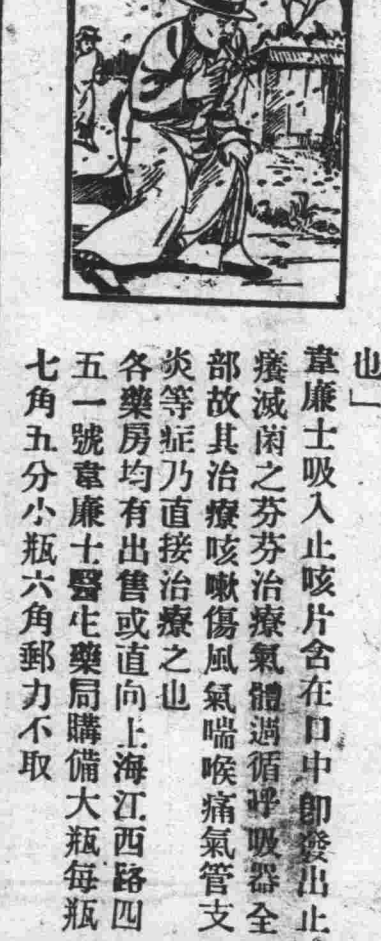 也」
韋廉士吸入止咳片含在口中卽發出止
癢滅菌之芬芬治療氣體過循呼吸器全
部故其治療咳嗽傷風氣喘喉痛氣管支
炎等症乃直接治療之也
各藥房均有出售或直向上海江西路四
五一號韋廉士醫生藥局購備大瓶每瓶
七角五分小瓶六角郵力不取